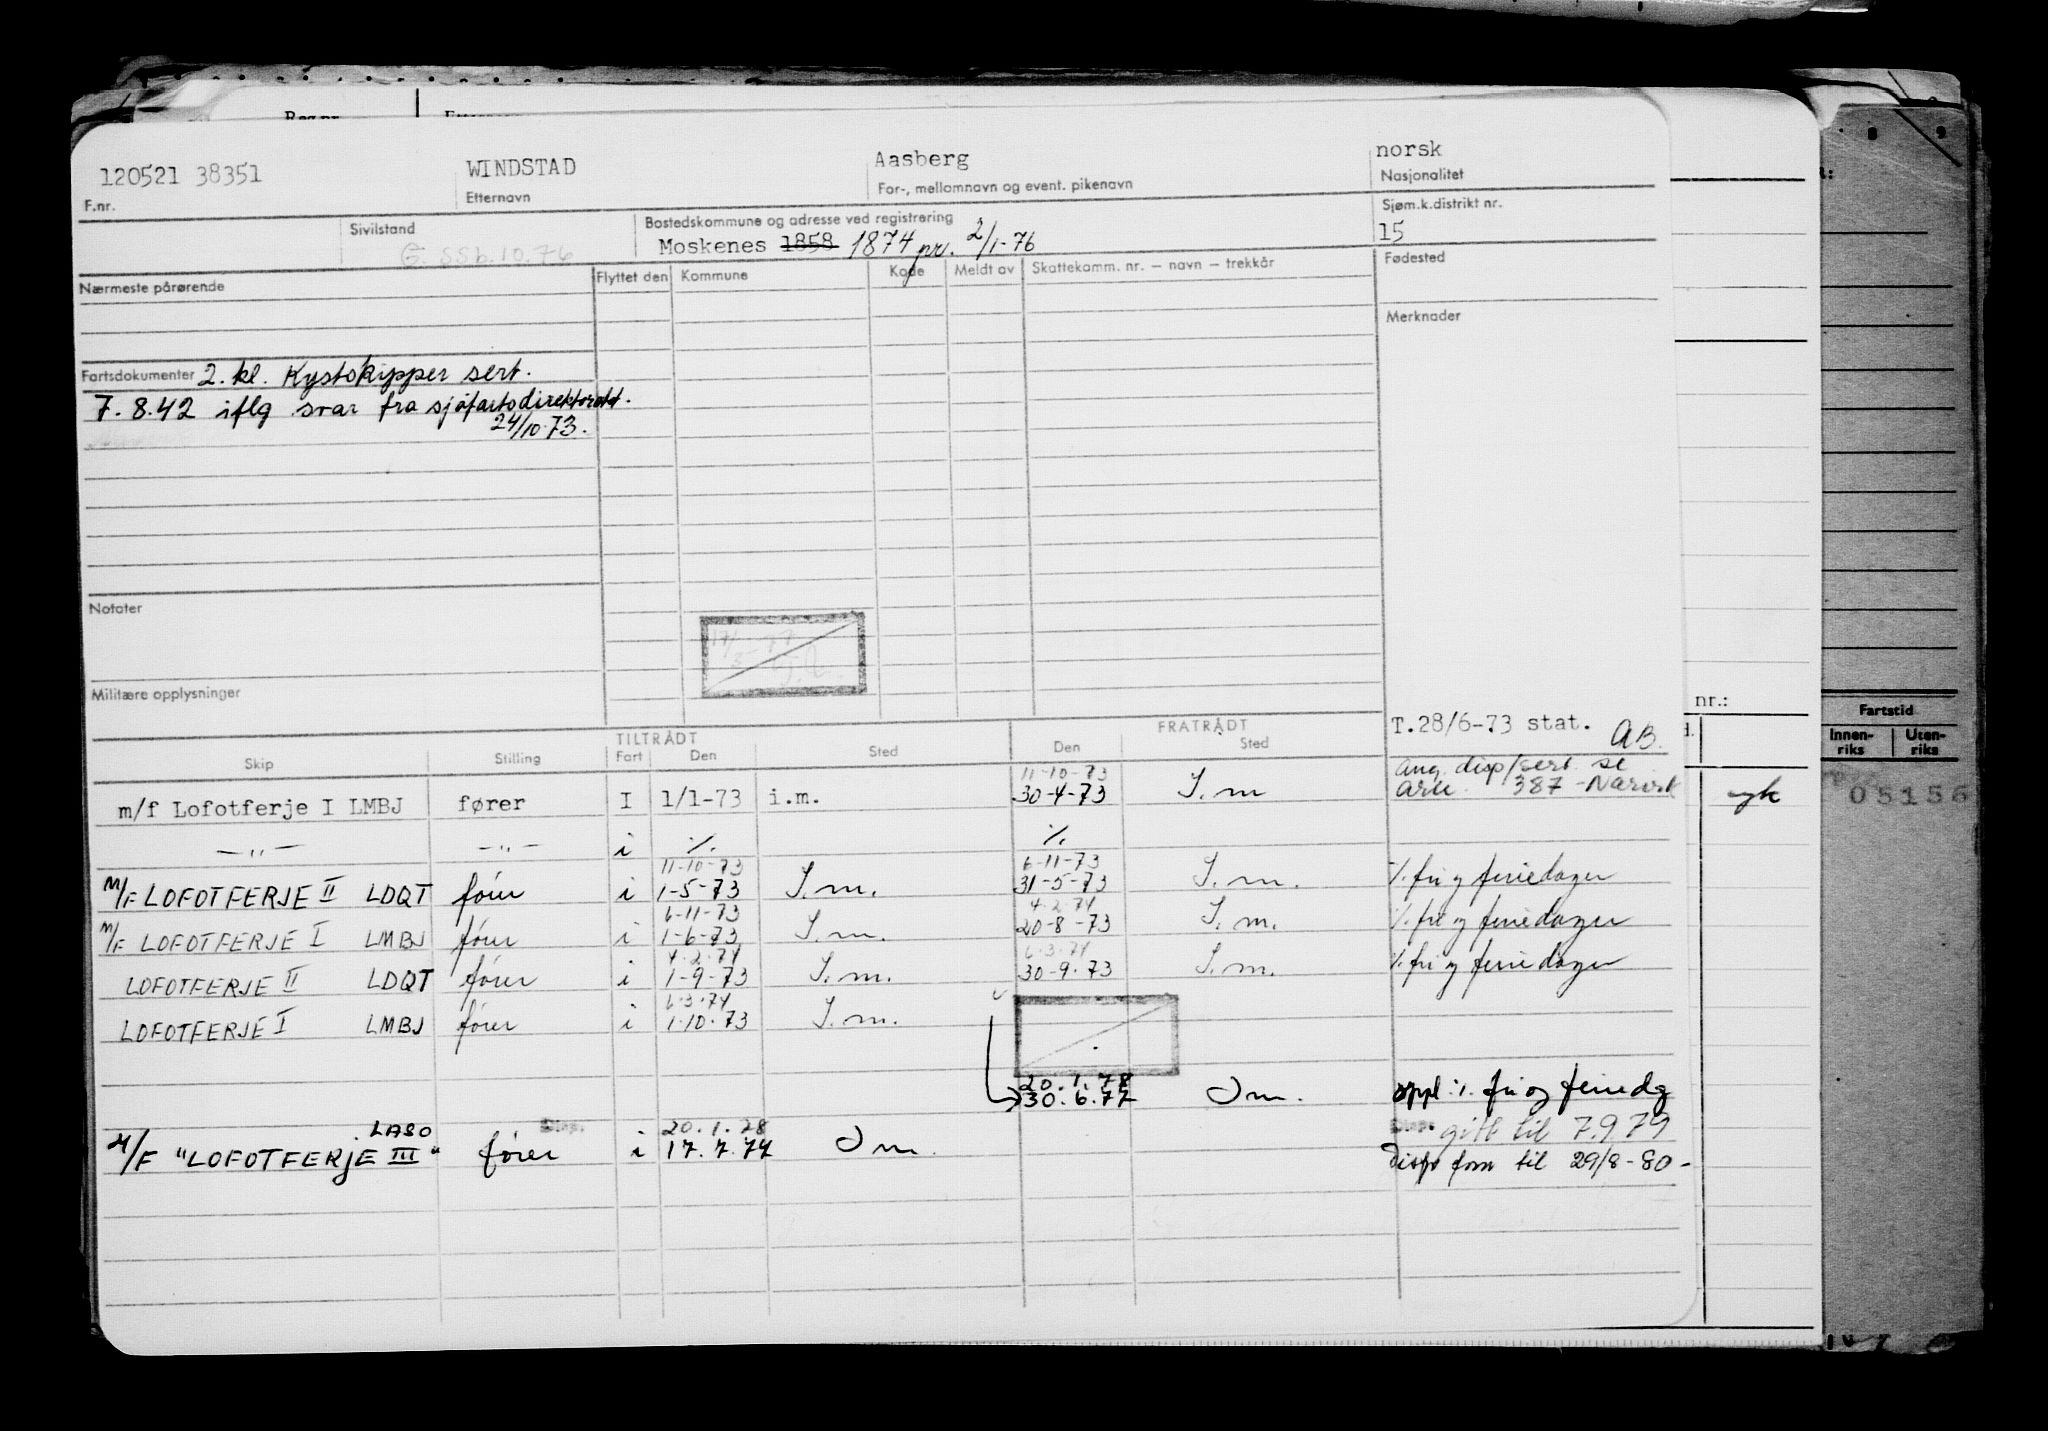 Reg.nr.
120521 38351 WINDSTAD Aasberg norsk
F.nr. Etternavn For-, mellomnavn og event. pikenavn Nasjonalitet
Sivilstand Bostedskommune og adresse ved registrering Sjøm.k.distrikt nr.
G. SSb.10.76 Moskenes 1858 1874 pr. 2/1-76 15
Nærmeste pårørende Flyttet den Kommune Kode Meldt av Skattekomm. nr. – navn – trekkår Fødested
Merknader
Fartsdokumenter 2. kl. Kystskipper sert.
7.8.42 iflg svar fra sjøfartsdirektoratet.
24/10.73.
Notater
Militære opplysninger
nr.:
T.28/6-73 stat. AB.
TILTRÅDT FRATRÅDT
Skip Stilling Fart Den Sted Den Sted
Fartstid
Innen-riks Uten-riks
11-10-73 ang. disp/sert. se
m/f Lofotferje I LMBJ fører I 1/1-73 i.m. 30-4-73 I.m ark. 387 -
05156
—"— —"— i ./. ./.
11-10-73 6-11-73
M/F LOFOTFERJE II LDQT fører i 1-5-73 I.m. 31-5-73 I.m. ./. fri og feriedager
6-11-73 4.2.74
M/F LOFOTFERJE I LMBJ fører i 1-6-73 I.m. 20-8-73 I.m. ./. fri og feriedager
4.2.74 6.3.74
LOFOTFERJE II LDQT fører i 1-9-73 I.m. 30-9-73 I.m. ./. fri og feriedager
6.3.74
LOFOTFERJE I LMBJ fører i 1-10-73 I.m.
20.1.78
30.6.77 Im. oppl ./. fri og feriedg
Disp. Disp. gitt til 7.9 79
LASO 20.1.78
M/F "LOFOTFERJE III" fører i 17.7.77 Im. Disp forn til 29/8-80-